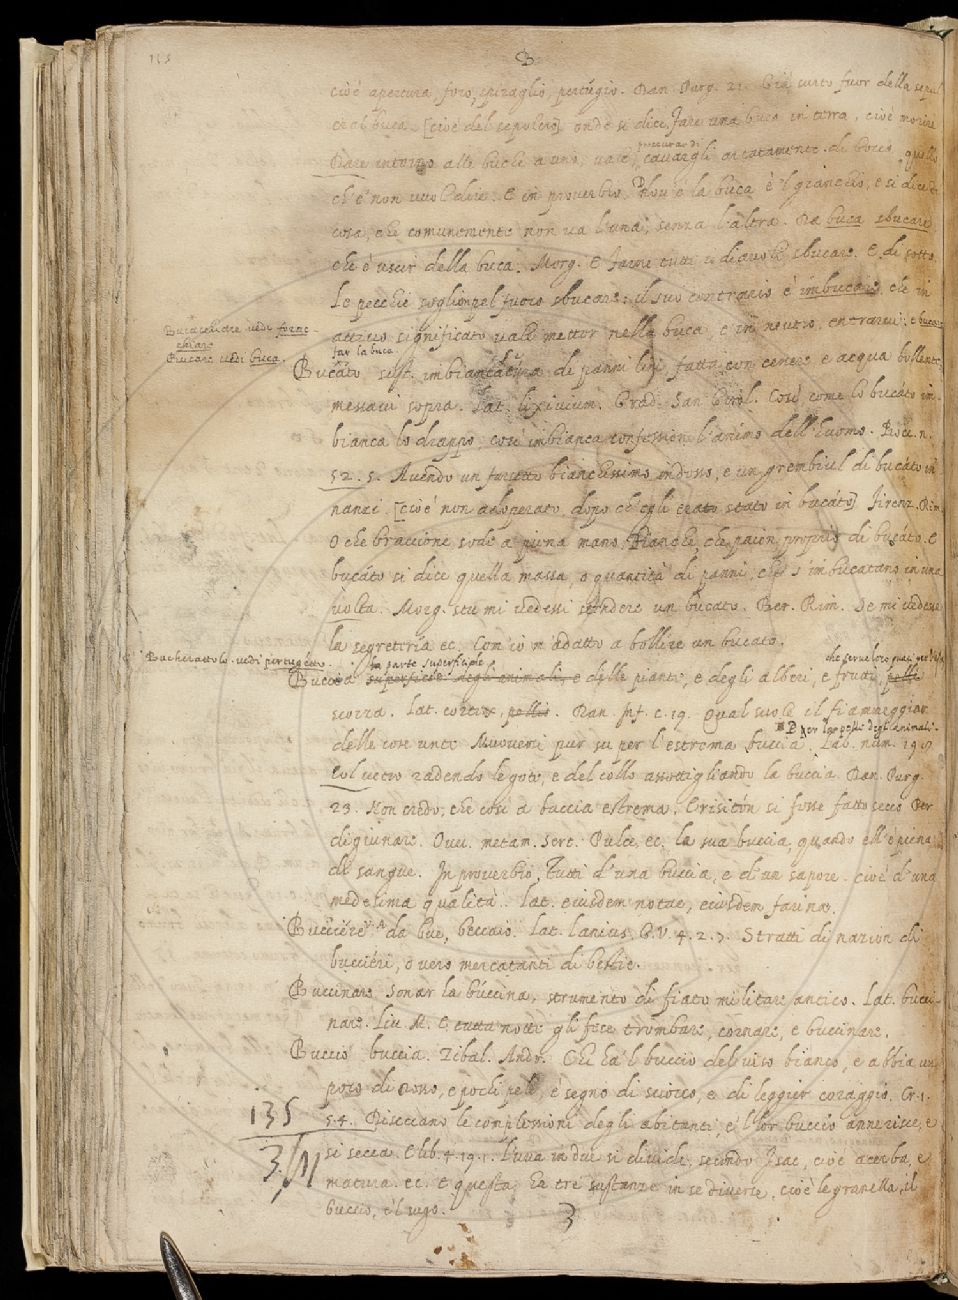 B
cioè apertura, foro, spiraglio, pertugio. Dan. Purg. 21. Già surto fuor della sepul
cral buca. [cioè del sepolcro] onde si dice, Fare una buca in terra, cioè morire
Dare intorno alle buche a uno, vale, procurar di cavargli di bocca quello
ch'e' non vuol dire. E in proverbio, Dov'è la buca è 'l granchio, e si dice di
cosa, che comunemente non va l'una, senza l'altra. Da buca sbucare
che è uscir della buca. Morg. E farne tutti i diavoli sbucare. E di sotto
Le pecchie soglion pel fumo sbucare: il suo contrario è imbucare che in
attivo significato vale metter nella buca, e in neutro, entrarvi; e bucare
far la buca.
Bucacchiare vedi forac-
chiare
Bucare vedi buca.
Bucáto sust. imbiancatura di panni lini fatta con cenere e acqua bollente,
messavi sopra. Lat. lixivium. Grad. San Girol. Così come lo bucáto im-
bianca lo drappo, così imbianca confession l'animo dell'huomo. Bocc. n.
52. 5. Avendo un farsetto bianchissimo indosso, e un grembiul di bucáto in
nanzi. [cioè non adoperato, dopo ch'egli era stato in bucáto] Firenz. Rim.
O che braccióne sode a piena mano, Bianche, che paion proprio di bucáto. E
bucáto si dice quella massa, o quantità di panni, che s'imbucatano in una
volta. Morg. stu mi vedessi stendere un bucato. Ber. Rim. Se mi vedesse
la segreteria ec. Com'io m'adatto a bollire un bucato.
Bucherattolo. vedi pertugetto.
Buccia la parte superficiale superficie degli animali, e delle piante, e degli alberi, e frutti, che serve loro quasi per pelle
scorza. Lat. cortex, pellis. Dan. Inf. c. 19. Qual suole il fiammeggiar
delle cose unte Muoversi pur su per l'estrema buccia. per la pelle degli animali. Lab. num. 197
Col vetro radendo le gote, e del collo assottigliando la buccia. Dan. Purg.
23. Non credo, che così a buccia estrema, Erisitón si fusse fatto secco Per
digiunare. Ovvi. metam. Sert. Pulce, ec. la sua buccia, quando ell'è piena
di sangue. In proverbio, Tutti d'una buccia, e d'un sapore. cioè d'una
medesima qualità. Lat. eiusdem notae, eiusdem farinae.
Bucciére da bue, beccaio. Lat. lanius, G. V. 4. 2. 7. Stratti di nazion di
bucciéri, o vero mercatanti di bestie.
Buccinare Sonar la búccina, strumento di fiato militare antico. Lat. bucci-
nare. Liv. M. E tutta notte gli fece trombare, cornare, e buccinare.
Buccio buccia. Zibal. Andr. Chi ha 'l buccio del viso bianco, e abbia un
poco di rosso, e pochi peli, è segno di sciocco, e di leggier coraggio. Cr. 1.
5. 4. Diseccano le complessioni degli abitanti, e 'l lor buccio annerisce, e
si secca. E lib. 4. 19. 1. L'uva in due si divide, secondo Isac, cioè acerba, e
matura. ec. e questa, ha tre sustanze in se diverse, cioè le granella, il
buccio, e 'l sugo.
135
3
3